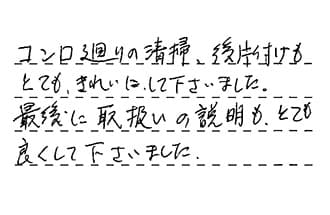 コンロ廻りの清掃、後片付けも
とても、きれいに、して下さいました。
最後に取扱いの説明も、とても
良くして下さいました。